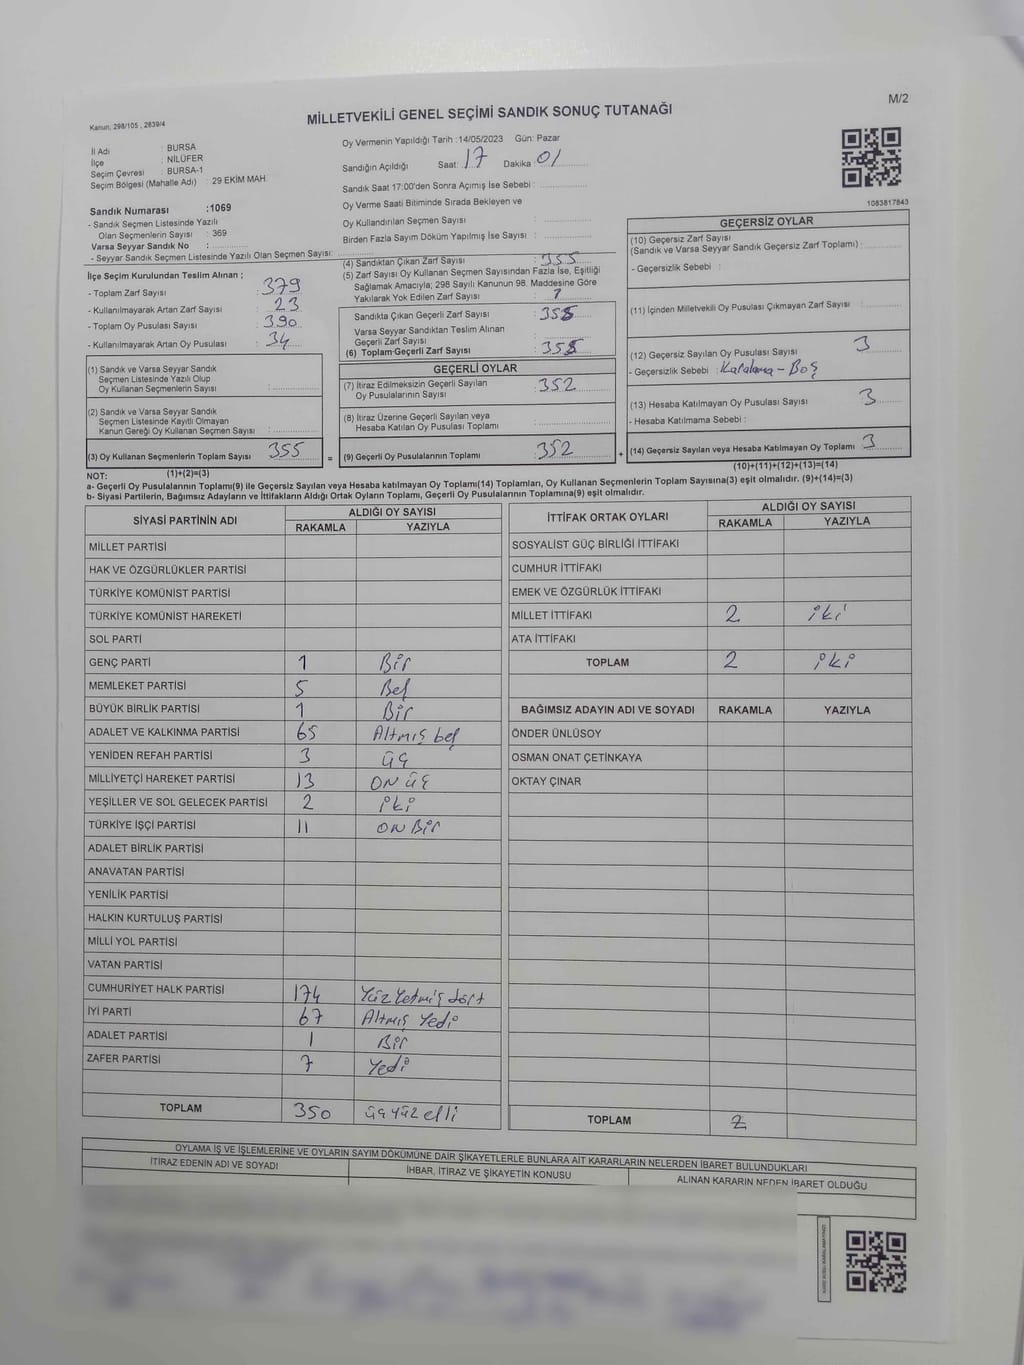 M/2
MİLLETVEKİLİ GENEL SEÇİMİ SANDIK SONUÇ TUTANAĞI
Kanun, 298/105 , 2839/4
İl Adı : BURSA
İlçe : NİLÜFER
Seçim Çevresi : BURSA-1
Seçim Bölgesi (Mahalle Adı) : 29 EKİM MAH.
Sandık Numarası :1069
- Sandık Seçmen Listesinde Yazılı
Olan Seçmenlerin Sayısı : 369
Varsa Seyyar Sandık No :
- Seyyar Sandık Seçmen Listesinde Yazılı Olan Seçmen Sayısı:
Oy Vermenin Yapıldığı Tarih :14/05/2023 Gün: Pazar
Sandığın Açıldığı Saat: 17 Dakika 01
Sandık Saat 17:00'den Sonra Açımış İse Sebebi :
Oy Verme Saati Bitiminde Sırada Bekleyen ve
Oy Kullandırılan Seçmen Sayısı :
Birden Fazla Sayım Döküm Yapılmış İse Sayısı :
1083817843
İlçe Seçim Kurulundan Teslim Alınan ;
- Toplam Zarf Sayısı : 379
- Kullanılmayarak Artan Zarf Sayısı : 23
- Toplam Oy Pusulası Sayısı : 390
- Kullanılmayarak Artan Oy Pusulası : 34
(1) Sandık ve Varsa Seyyar Sandık
Seçmen Listesinde Yazılı Olup
Oy Kullanan Seçmenlerin Sayısı :
(2) Sandık ve Varsa Seyyar Sandık
Seçmen Listesinde Kayıtlı Olmayan
Kanun Gereği Oy Kullanan Seçmen Sayısı :
(3) Oy Kullanan Seçmenlerin Toplam Sayısı 355 =
(4) Sandıktan Çıkan Zarf Sayısı : 355
(5) Zarf Sayısı Oy Kullanan Seçmen Sayısından Fazla İse, Eşitliği
Sağlamak Amacıyla; 298 Sayılı Kanunun 98. Maddesine Göre
Yakılarak Yok Edilen Zarf Sayısı :
Sandıkta Çıkan Geçerli Zarf Sayısı : 355
Varsa Seyyar Sandıktan Teslim Alınan
Geçerli Zarf Sayısı :
(6) Toplam Geçerli Zarf Sayısı : 355
GEÇERLİ OYLAR
(7) İtiraz Edilmeksizin Geçerli Sayılan
Oy Pusulalarının Sayısı : 352
(8) İtiraz Üzerine Geçerli Sayılan veya
Hesaba Katılan Oy Pusulası Toplamı :
(9) Geçerli Oy Pusulalarının Toplamı : 352 +
GEÇERSİZ OYLAR
(10) Geçersiz Zarf Sayısı
(Sandık ve Varsa Seyyar Sandık Geçersiz Zarf Toplamı) :
- Geçersizlik Sebebi :
(11) İçinden Milletvekili Oy Pusulası Çıkmayan Zarf Sayısı :
(12) Geçersiz Sayılan Oy Pusulası Sayısı : 3
- Geçersizlik Sebebi : Karalama - Boş
(13) Hesaba Katılmayan Oy Pusulası Sayısı : 3
- Hesaba Katılmama Sebebi :
(14) Geçersiz Sayılan veya Hesaba Katılmayan Oy Toplamı : 3
NOT: (1)+(2)=(3)
(10)+(11)+(12)+(13)=(14)
a- Geçerli Oy Pusulalarının Toplamı(9) ile Geçersiz Sayılan veya Hesaba katılmayan Oy Toplamı(14) Toplamları, Oy Kullanan Seçmenlerin Toplam Sayısına(3) eşit olmalıdır. (9)+(14)=(3)
b- Siyasi Partilerin, Bağımsız Adayların ve İttifakların Aldığı Ortak Oyların Toplamı, Geçerli Oy Pusulalarının Toplamına(9) eşit olmalıdır.
SİYASİ PARTİNİN ADI ALDIĞI OY SAYISI
RAKAMLA YAZIYLA
MİLLET PARTİSİ
HAK VE ÖZGÜRLÜKLER PARTİSİ
TÜRKİYE KOMÜNİST PARTİSİ
TÜRKİYE KOMÜNİST HAREKETİ
SOL PARTİ
GENÇ PARTİ 1 Bir
MEMLEKET PARTİSİ 5 Beş
BÜYÜK BİRLİK PARTİSİ 1 Bir
ADALET VE KALKINMA PARTİSİ 65 Altmış beş
YENİDEN REFAH PARTİSİ 3 üç
MİLLİYETÇİ HAREKET PARTİSİ 13 ON üç
YEŞİLLER VE SOL GELECEK PARTİSİ 2 iki
TÜRKİYE İŞÇİ PARTİSİ 11 ON Bir
ADALET BİRLİK PARTİSİ
ANAVATAN PARTİSİ
YENİLİK PARTİSİ
HALKIN KURTULUŞ PARTİSİ
MİLLİ YOL PARTİSİ
VATAN PARTİSİ
CUMHURİYET HALK PARTİSİ 174 Yüz Yetmiş dört
İYİ PARTİ 67 Altmış Yedi
ADALET PARTİSİ 1 Bir
ZAFER PARTİSİ 7 Yedi
TOPLAM 350 üç yüz elli
İTTİFAK ORTAK OYLARI ALDIĞI OY SAYISI
RAKAMLA YAZIYLA
SOSYALİST GÜÇ BİRLİĞİ İTTİFAKI
CUMHUR İTTİFAKI
EMEK VE ÖZGÜRLÜK İTTİFAKI
MİLLET İTTİFAKI 2 iki
ATA İTTİFAKI
TOPLAM 2 iki
BAĞIMSIZ ADAYIN ADI VE SOYADI RAKAMLA YAZIYLA
ÖNDER ÜNLÜSOY
OSMAN ONAT ÇETİNKAYA
OKTAY ÇINAR
TOPLAM 2
OYLAMA İŞ VE İŞLEMLERİNE VE OYLARIN SAYIM DÖKÜMÜNE DAİR ŞİKAYETLERLE BUNLARA AİT KARARLARIN NELERDEN İBARET BULUNDUKLARI
İTİRAZ EDENİN ADI VE SOYADI İHBAR, İTİRAZ VE ŞİKAYETİN KONUSU ALINAN KARARIN NEDEN İBARET OLDUĞU